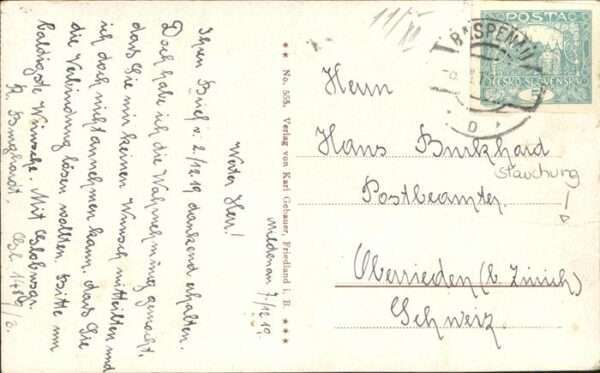 11/XII
Mildenau 7/12 19.
Werter Herr!
Ihren Brief v. 2/12 19 dankend erhalten.
Doch habe ich die Wahrnehmung gemacht,
dass Sie mir keinen Wunsch mitteilten und
ich doch nicht annehmen kann, dass Sie
die Verbindung lösen wollten. Bitte um
baldigste Wünsche. Mit
No. 553. Verlag von Karl Gebauer, Friedland i. B.
RASPENAU
D
POSTA
ČESKO-SLOVENSKÁ
Herrn
Hans Burkhard
Stauchung
Postbeamter
Oberrieden (b. Zürich)
Schweiz.